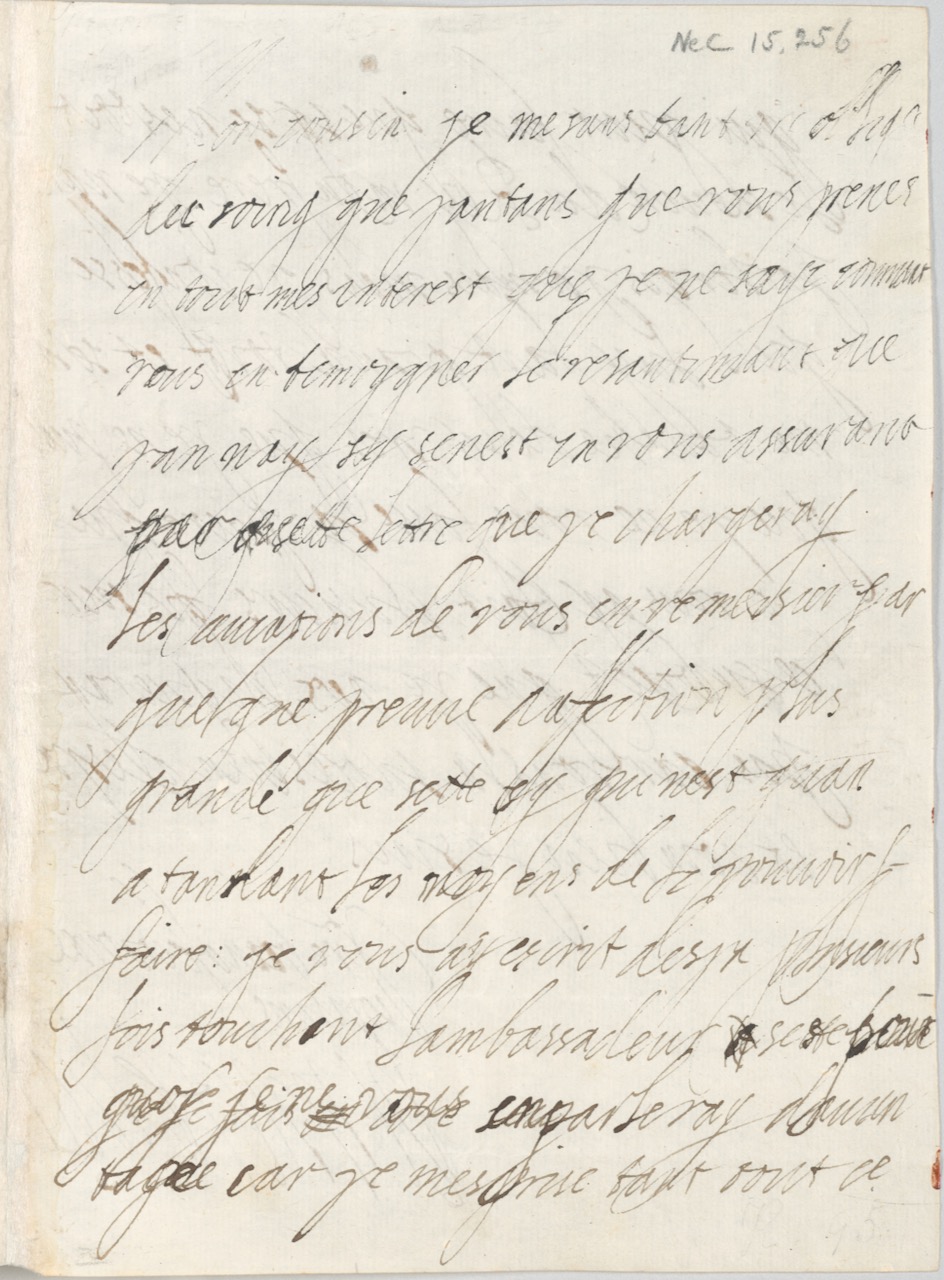 NeC 15,256
Mon cousin je me sans tant
du soing que jantans que vous prenes
en tout mes interest que je ne say comment
vous en temoygner le resantimant que
jan nay sy se nest en vous assurant
par sette lettre que je chargeray
les aucations de vous en remersier par
quelque preuue dafection plus
grande que sette sy qui nest quan
atandant les moyens de le pouuoir
faire: je vous ay escrit desja plusieurs
fois touchant lambassadeur
je ne vous en parleray dauan
tage car je mesprise tant tout ce